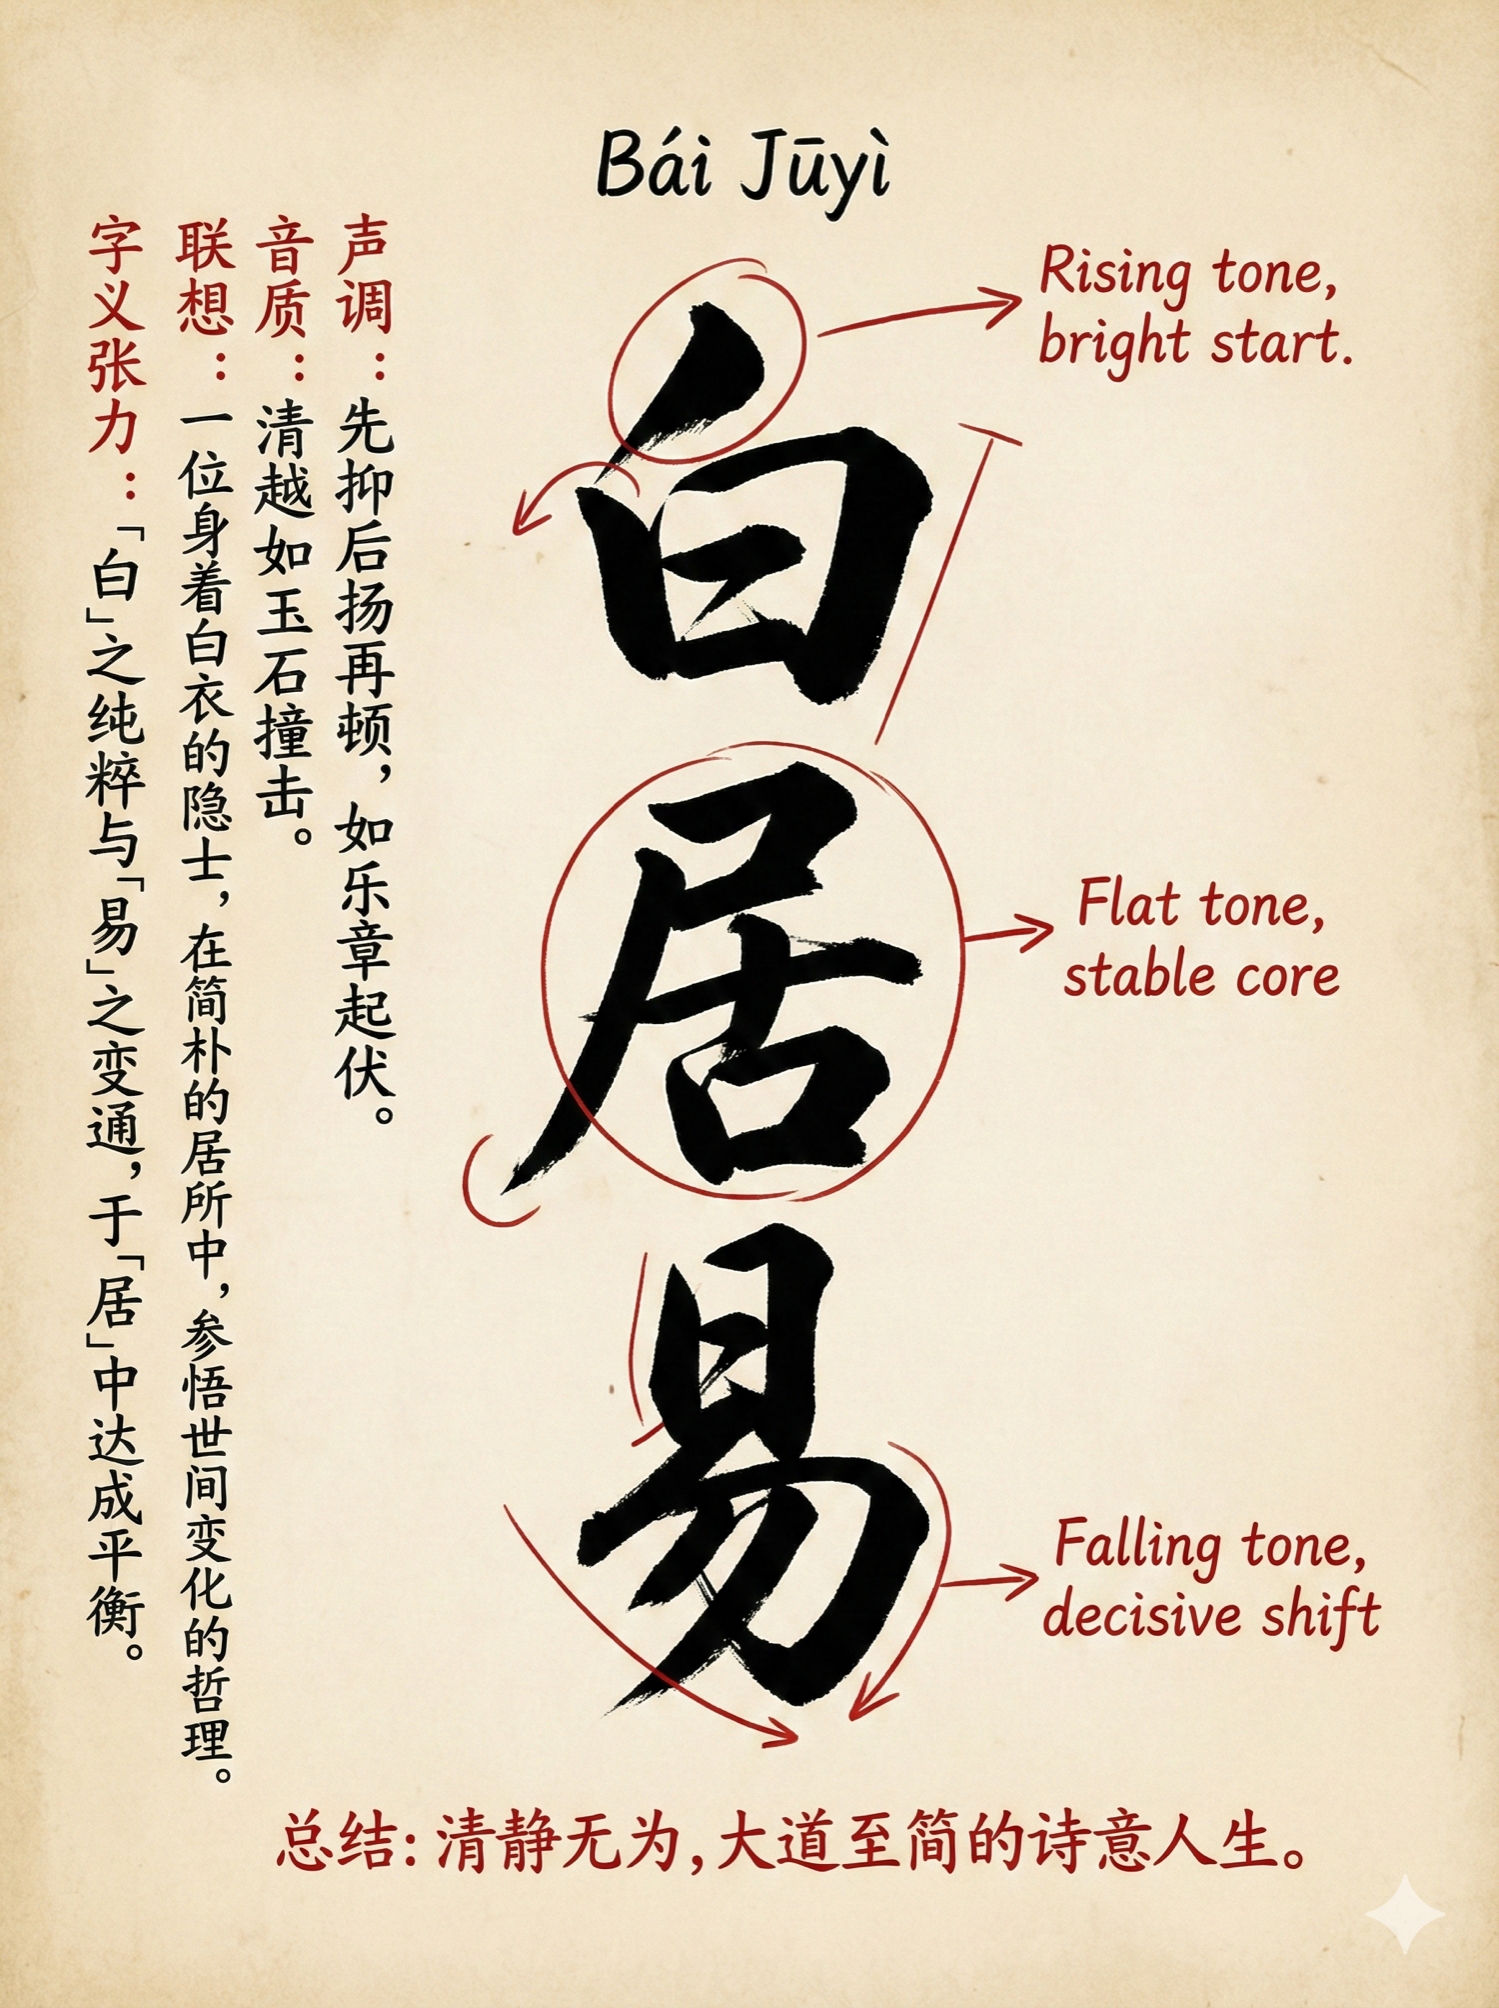 Bái Jūyì
白居易
Rising tone,
bright start.
Flat tone,
stable core
Falling tone,
decisive shift
声调：先抑后扬再顿，如乐章起伏。
音质：清越如玉石撞击。
联想：一位身着白衣的隐士，在简朴的居所中，参悟世间变化的哲理。
字义张力：「白」之纯粹与「易」之变通，于「居」中达成平衡。
总结：清静无为，大道至简的诗意人生。